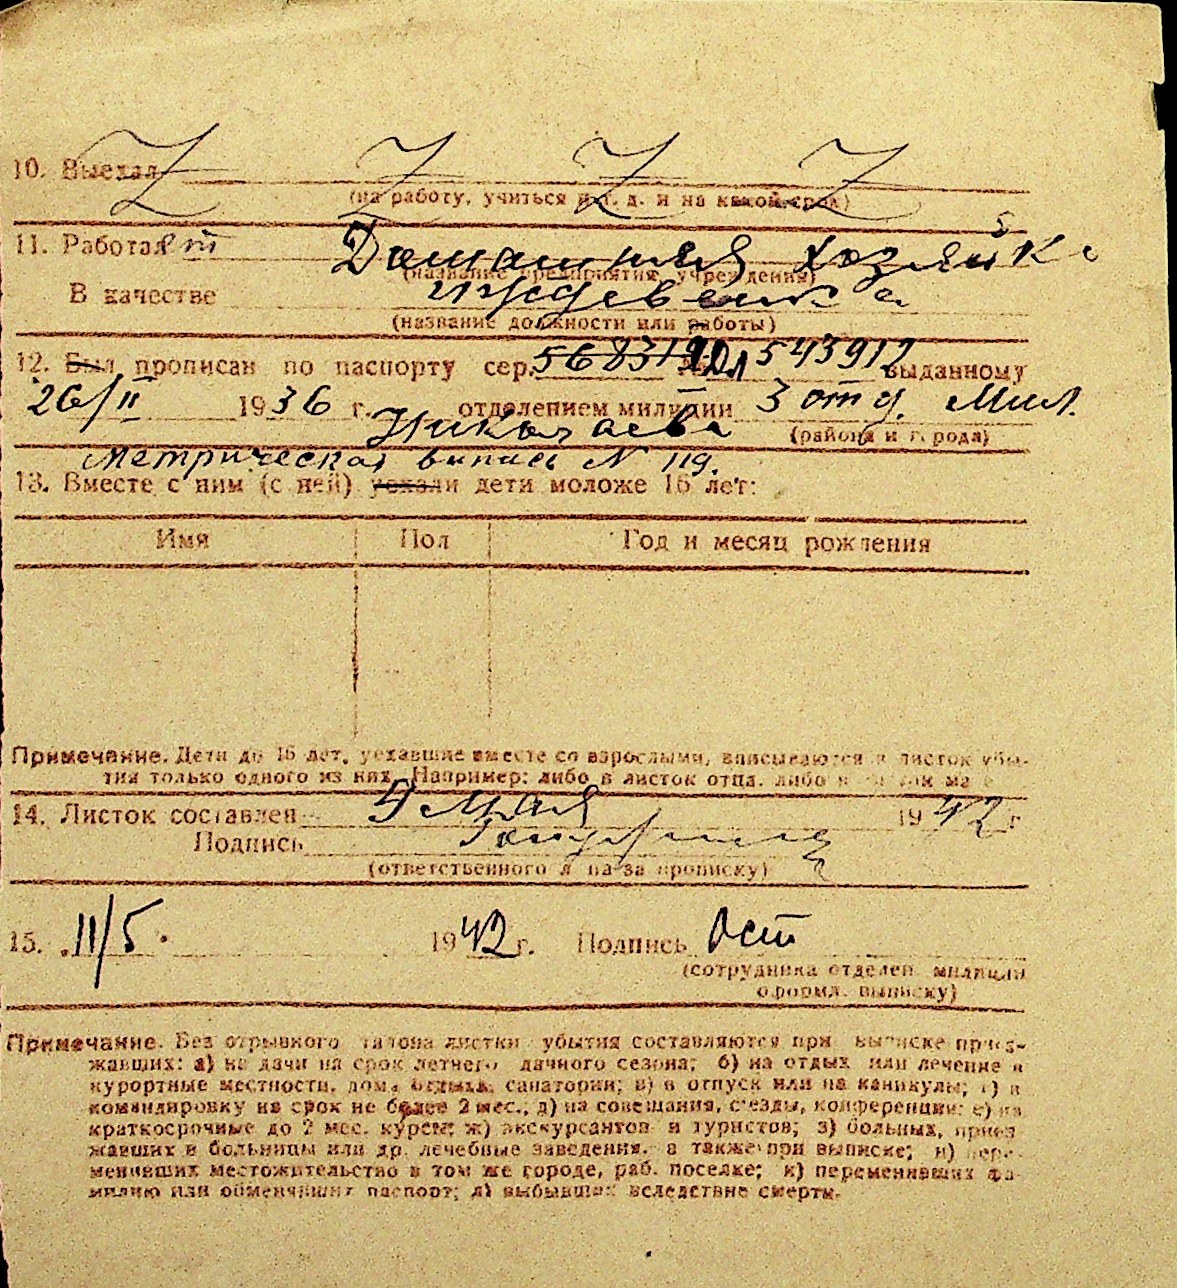 10. Выехал Z Z Z Z
(на работу, учиться и т. д. и на какой срок)
11. Работает Домашняя хозяйка
(название предприятия, учреждения)
В качестве иждевенка
(название должности или работы)
12. Был прописан по паспорту сер. 543912 выданному
26/II 1936 г. отделением милиции 3 отд. Мил.
Николаева (района и города)
Метрическая выпись N 119.
13. Вместе с ним (с ней) уехали дети моложе 16 лет:
Имя Пол Год и месяц рождения
Примечание. Дети до 16 лет, уехавшие вместе со взрослыми, вписываются в листок убы-
тия только одного из них. Например: либо в листок отца, либо в листок ма
14. Листок составлен 9 мая 1942 г
Подпись
(ответственного л па за прописку)
15. 11/5. 1942 г. Подпись Ост
(сотрудника отделен. милиции
оформл. выписку)
Примечание. Без отрывного талона листки убытия составляются при выписке приез-
жавших: а) на дачи на срок летнего дачного сезона; б) на отдых или лечение в
курортные местности, дома отдыха, санатории; в) в отпуск или на каникулы; г) в
командировку на срок не более 2 мес.; д) на совещания, с'езды, конференции; е) на
краткосрочные до 2 мес. курсы; ж) экскурсантов и туристов; з) больных, приез
жавших в больницы или др. лечебные заведения, а также при выписке; и) пере-
менивших местожительство в том же городе, раб. поселке; к) переменивших фа-
милию или обменявших паспорт; л) выбывших вследствие смерти.